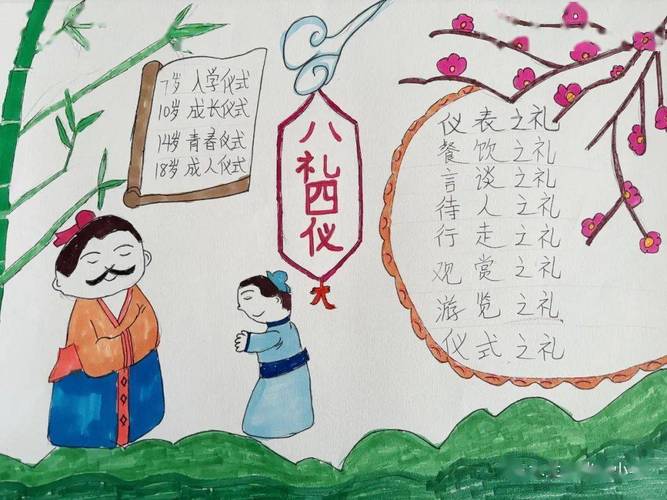 7岁 入学仪式
10岁 成长仪式
14岁 青春仪式
18岁 成人仪式
八礼四仪
仪表之礼
餐饮之礼
言谈之礼
待人之礼
行走之礼
观赏之礼
游览之礼
仪式之礼